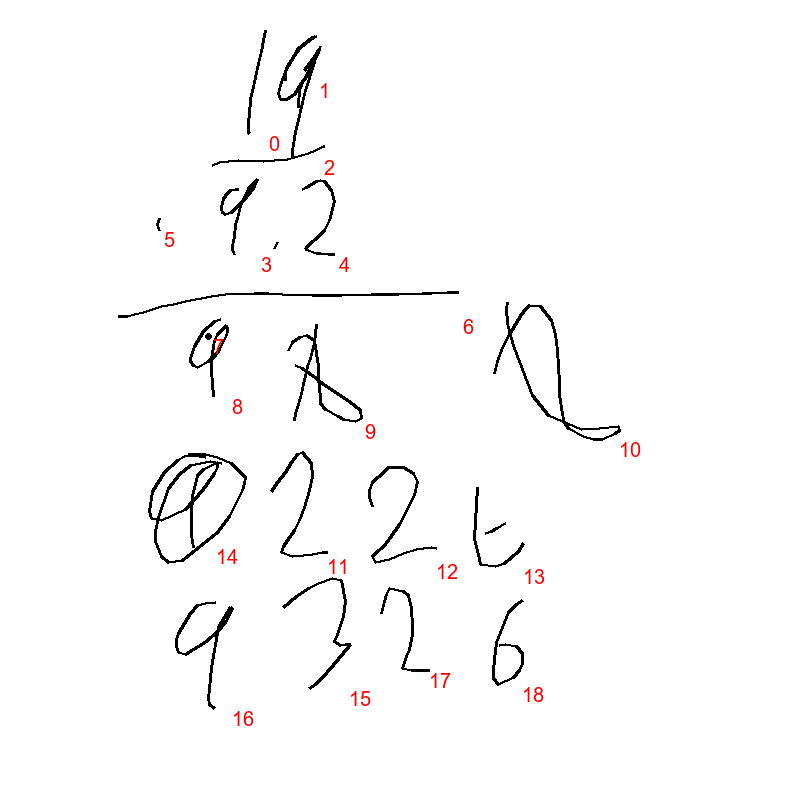 19
0 1
2
9.2
5 3 4
6
7
9
8 9 10
9 2 2 t
14 11 12 13
9 3 2 6
16 15 17 18